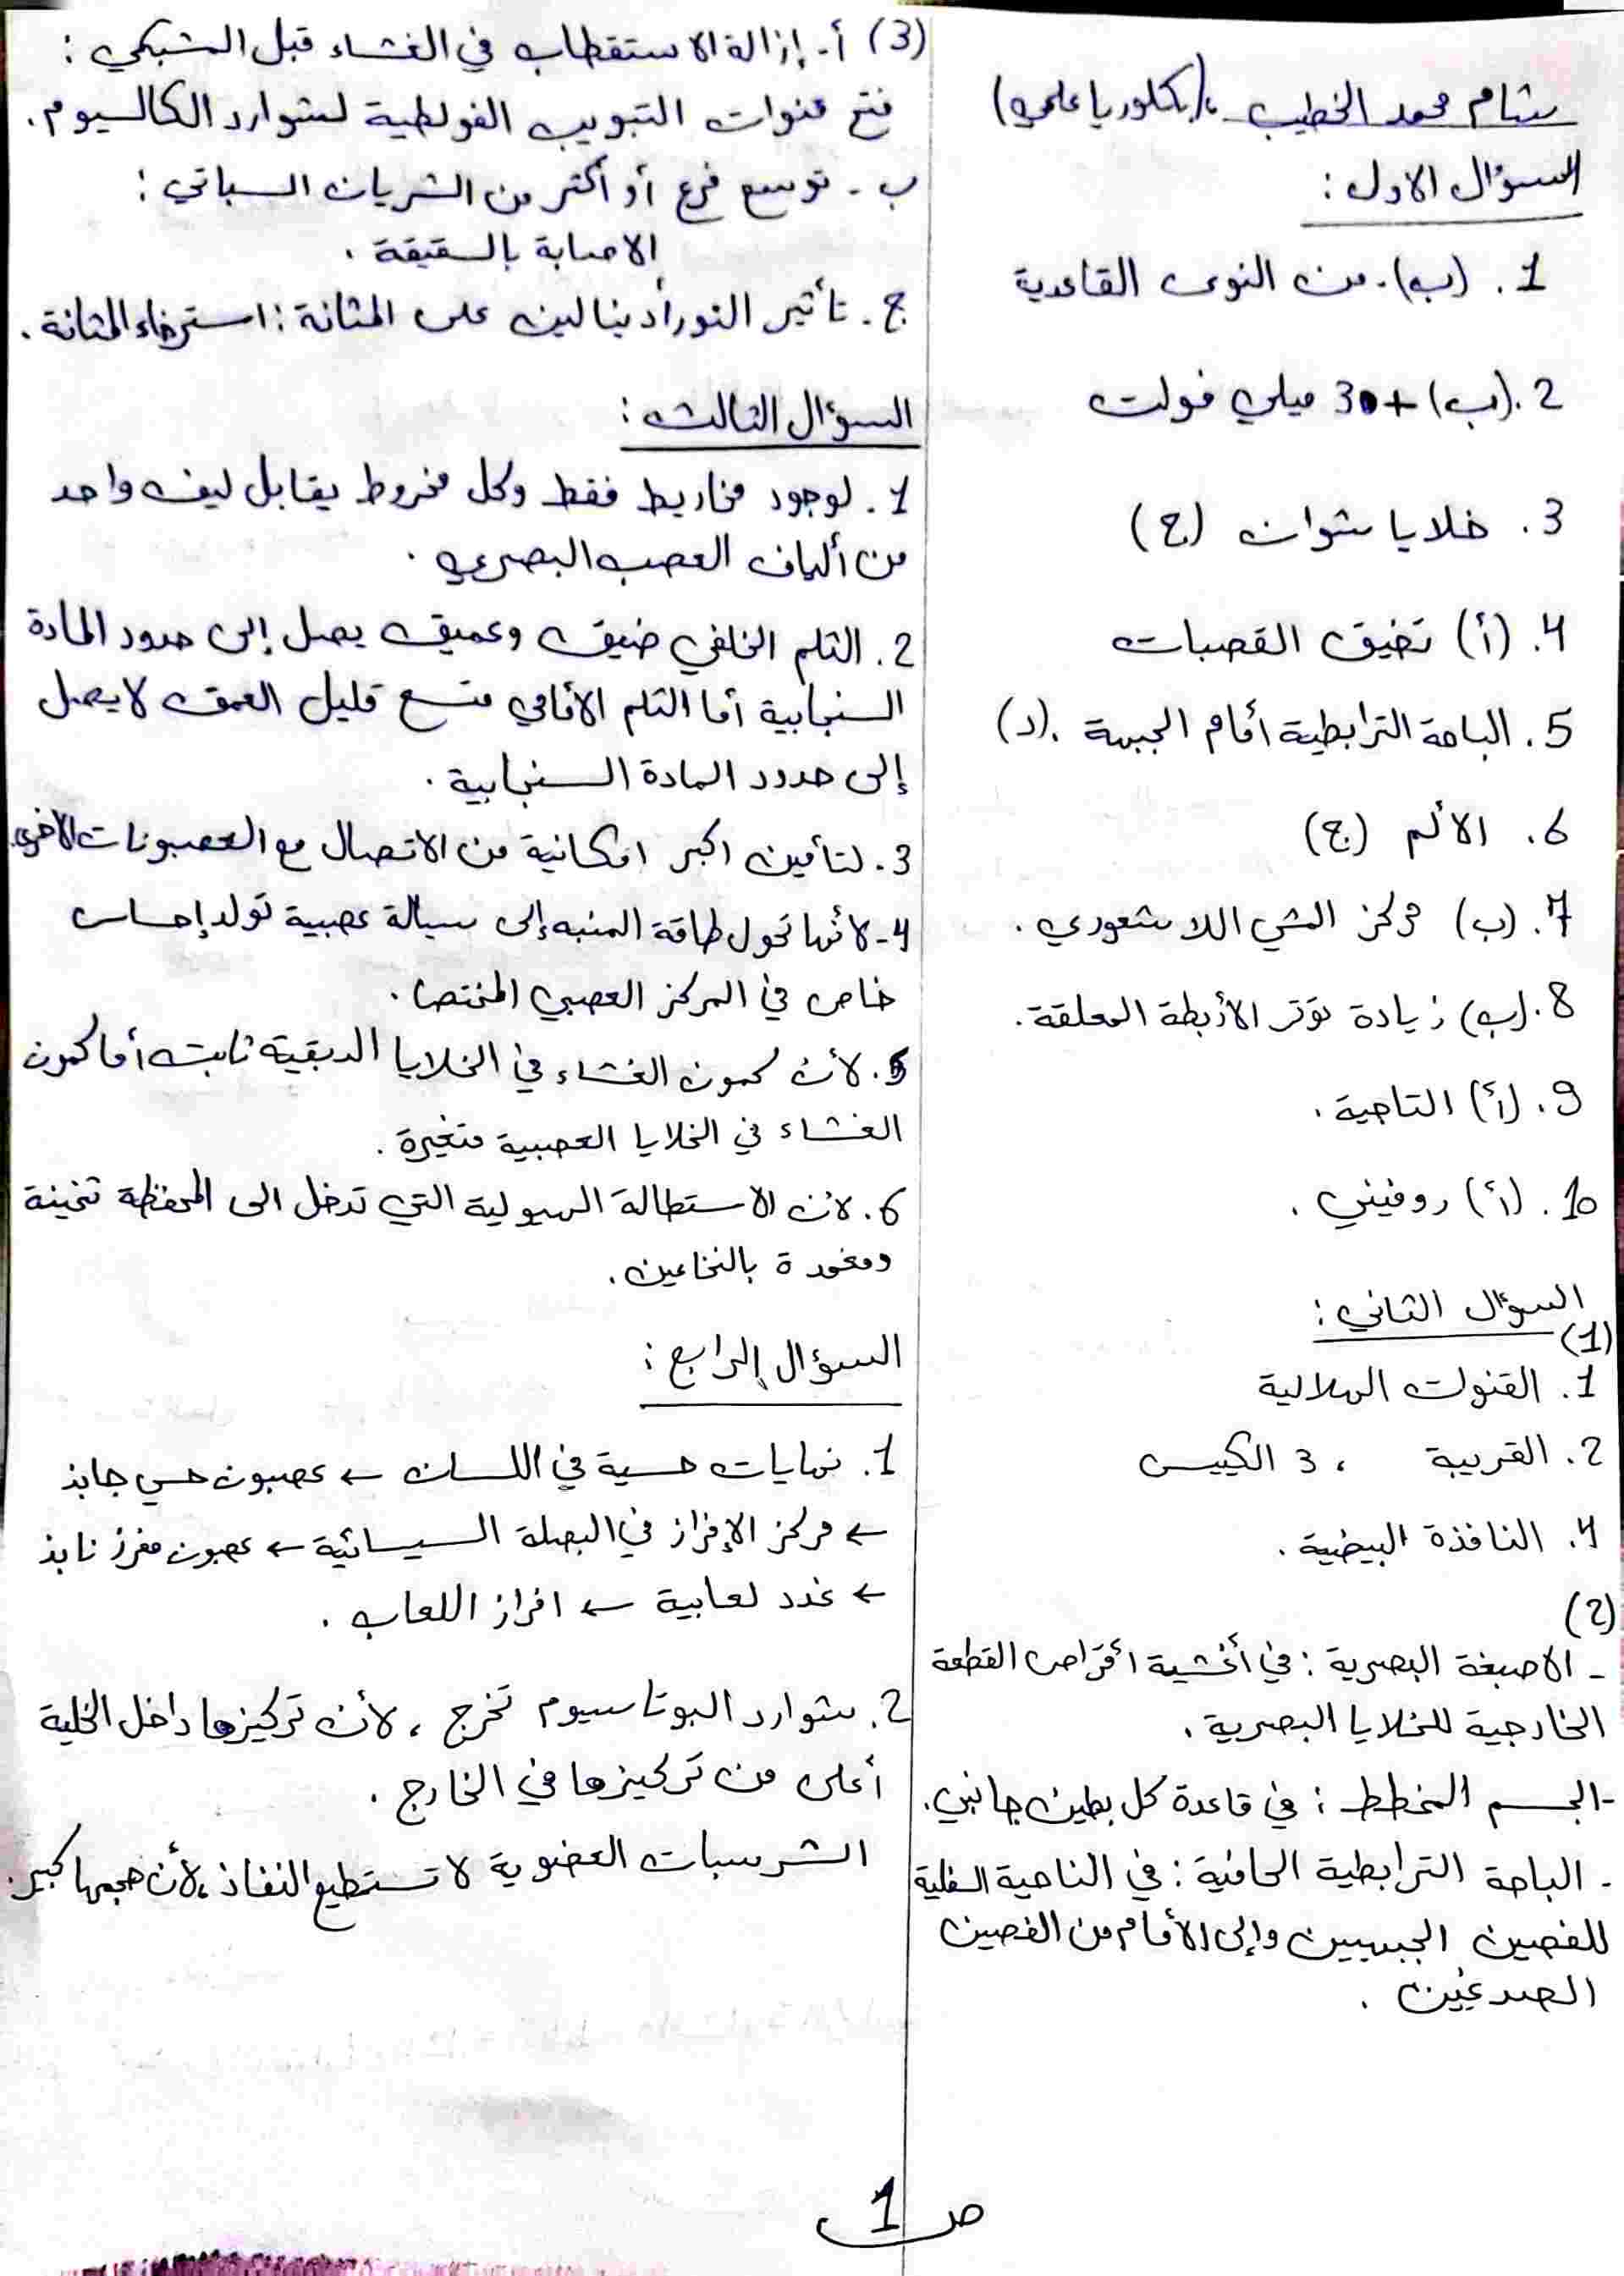 بشام محمد الخطيب ،(بكلوريا علمي)
السؤال الاول :
1. (ب). من النوى القاعدية
2.(ب) +30 ميلي فولت
3. خلايا شوان (ج)
4. (أ) تضيق القصبات
5. الباحة الترابطية أمام الجبهة .(د)
6. الألم (ج)
7. (ب) مركز المشي اللاشعوري .
8.(ب) زيادة توتر الأربطة المعلقة.
9. (أ) التاجية .
10. (أ) روفيني .
السؤال الثاني :
(1)
1. القنوات الهلالية
2. القريبة ، 3 الكييس
4. النافذة البيضية .
(2)
- الاصبغة البصرية : في أغشية أقراص القطعة
الخارجية للخلايا البصرية .
-الجسم المخطط : في قاعدة كل بطين جانبي.
- الباحة الترابطية الحافية : في الناحية السفلية
للفصين الجبهيين وإلى الأمام من الفصين
الصدغيين .
(3) أ- إزالة الاستقطاب في الغشاء قبل المشبكي :
فتح قنوات التبويب الفولطية لشوارد الكالسيوم.
ب - توسع فرع أو أكثر من الشريان السباتي :
الاصابة بالشقيقة .
ج. تأثير النورأدينالين على المثانة : استرخاء المثانة .
السؤال الثالث :
1. لوجود مخاريط فقط وكل مخروط يقابل ليف واحد
من ألياف العصب البصري .
2. الثلم الخلفي ضيق وعميق يصل إلى حدود المادة
السنجابية أما الثلم الأمامي متسع قليل العمق لا يصل
إلى حدود المادة السنجابية .
3. لتأمين اكبر امكانية من الاتصال مع العصبونات الاخرى
4-لأنها تحول طاقة المنبه إلى سيالة عصبية تولد إحساس
خاص في المركز العصبي المختص .
5. لأن كمون الغشاء في الخلايا الدبقية ثابت أما كمون
الغشاء في الخلايا العصبية متغيرة .
6. لان الاستطالة الهيولية التي تدخل الى المحفظة ثخينة
ومغمدة بالنخاعين .
السؤال الرابع :
1. نهايات حسية في اللسان ← عصبون حسي جابذ
← مركز الإفراز في البصلة السيسائية ← عصبون مفرز نابذ
← غدد لعابية ← افراز اللعاب .
2. شوارد البوتاسيوم تخرج ، لأن تركيزها داخل الخلية
أعلى من تركيزها في الخارج .
الشرسبات العضوية لا تستطيع النفاذ ،لأن حجمها كبير.
ص 1